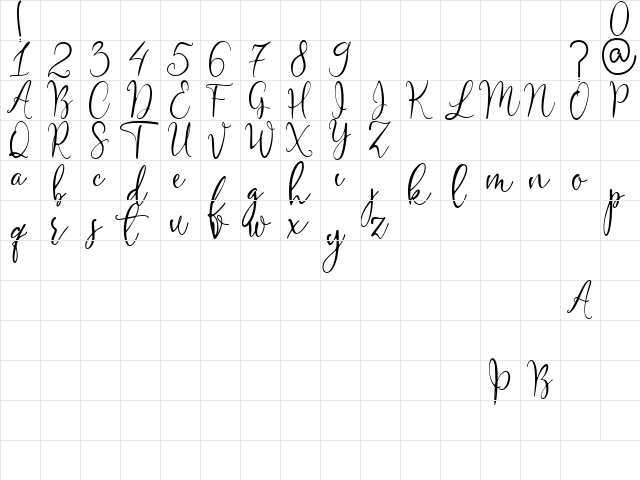 ! 0
1 2 3 4 5 6 7 8 9 ? @
A B C D E F G H I J K L M N O P
Q R S T U V W X Y Z
a b c d e f g h i j k l m n o p
q r s t u v w x y z
A
Þ B